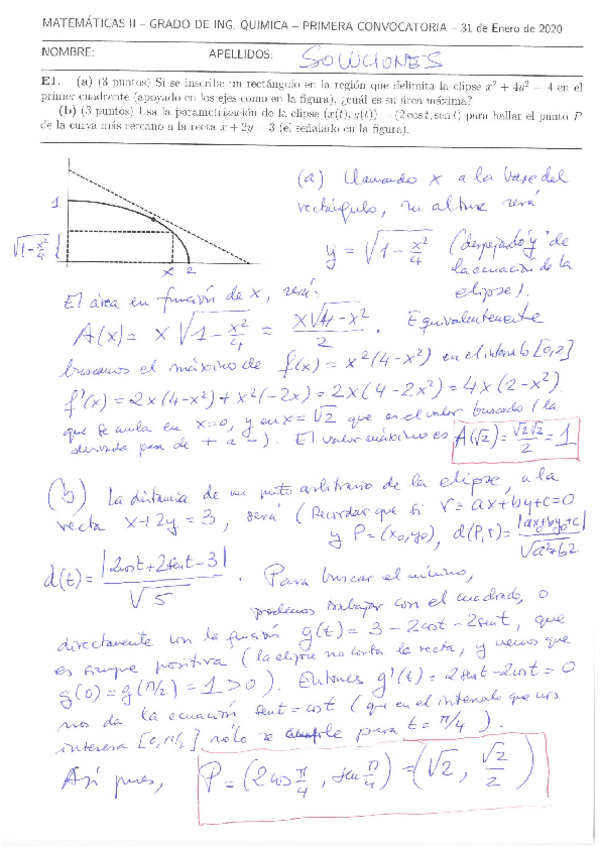 MATEMÁTICAS II – GRADO DE ING. QUIMICA – PRIMERA CONVOCATORIA – 31 de Enero de 2020
NOMBRE: APELLIDOS: SOLUCIONES
E1. (a) (3 puntos) Si se inscribe un rectángulo en la región que delimita la elipse x² + 4y² = 4 en el
primer cuadrante (apoyado en los ejes como en la figura), ¿cuál es su área máxima?
(b) (3 puntos) Usa la parametrización de la elipse (x(t), y(t)) = (2 cos t, sen t) para hallar el punto P
de la curva más cercano a la recta x + 2y = 3 (el señalado en la figura).
1
√1-x²/4
x 2
(a) Llamando x a la base del
rectángulo, su altura será
y = √1-x²/4 (despejando "y" de
la ecuación de la
elipse).
El área en función de x, será:
A(x) = x√1-x²/4 = x√4-x²/2 . Equivalentemente
buscamos el máximo de f(x) = x²(4-x²) en el intervalo [0,2]
f'(x) = 2x(4-x²) + x²(-2x) = 2x(4-2x²) = 4x(2-x²).
que se anula en x=0, y en x=√2 que es el valor buscado (la
derivada pasa de + a -). El valor máximo es A(√2) = √2√2/2 = 1
(b) La distancia de un punto arbitrario de la elipse, a la
recta x+2y=3, será (Recordar que si r≡ax+by+c=0
y P=(x₀,y₀), d(P,r)=|ax₀+by₀+c|/√a²+b²
d(t) = |2cost+2sent-3|/√5 . Para buscar el mínimo,
podemos trabajar con el cuadrado, o
directamente con la función g(t) = 3-2cost-2sent, que
es siempre positiva (la elipse no corta la recta, y vemos que
g(0)=g(π/2)=1>0). Entonces g'(t)=2sent-2cost=0
nos da la ecuación sent=cost (que en el intervalo que nos
interesa [0,π/2] sólo se cumple para t=π/4).
Así pues, P=(2cos π/4, sen π/4)=(√2, √2/2)